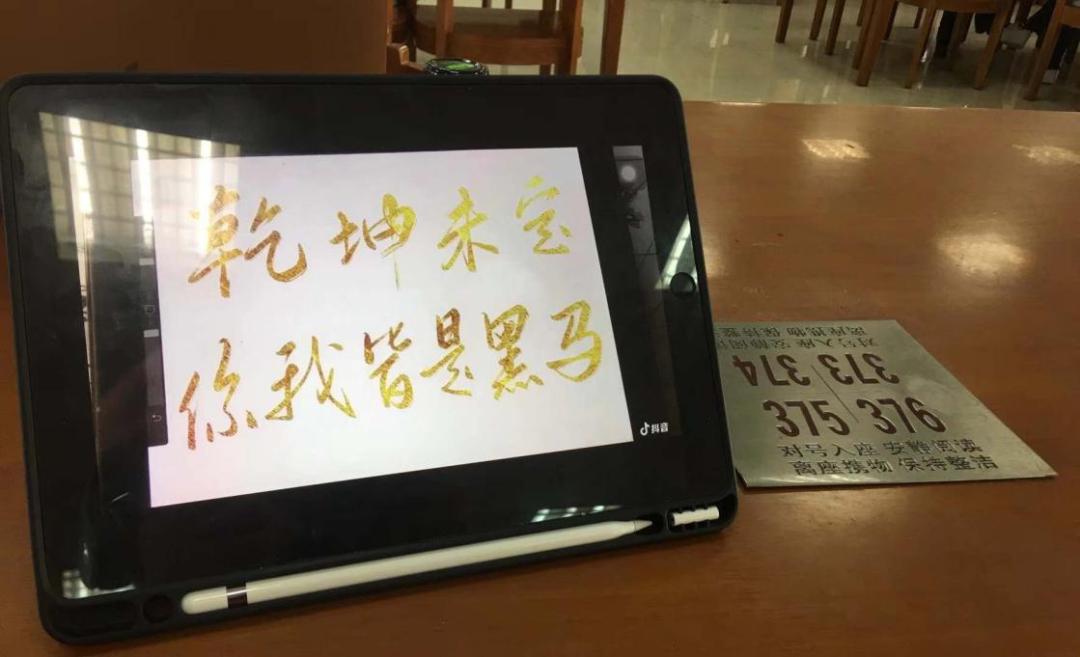 乾坤未定
你我皆是黑马
抖音
对号入座 安静阅读
离座携物 保持整洁
373
374
375 376
对号入座 安静阅读
离座携物 保持整洁